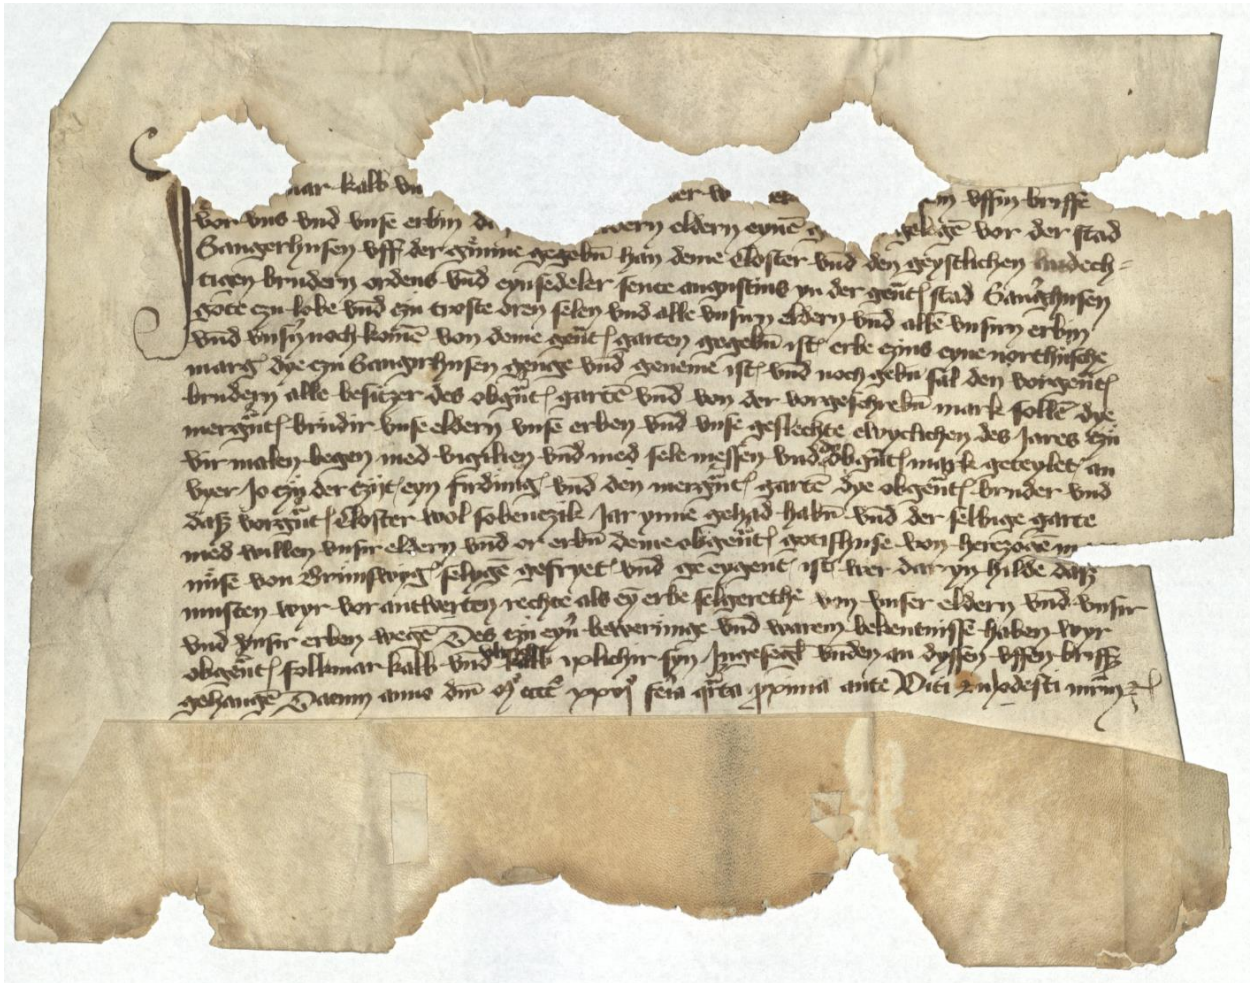 mar kalb vn er w in uffin briffe
vor vns vnd vnse erbin eldern eynē gelegē vor der stad
Sangerhusen uff der grūme gegebn̄ han deme Closter vnd den geystlichen andech=
tigen brudern ordens vnd eynsedeler sente augustins yn der gen̄t stad Sang̉husen
gote czu lobe vnd czu troste dren selen vnd alle vnsirn eldern vnd allē vnsirn erbin
vnd vnsn̄ noch komē von deme gen̄t garten gegebn̄ ist erbe czins eyne northusche
marg dye czu Sangirhusen genge vnd geneme ist vnd noch gebn̄ sal den vorgen̄t
brudern alle besitzer des obgn̄t gartē vnd von der vorgeschrebn̄ mark sollē dye
mergn̄t brudir vnse eldern vnse erben vnd vnse geslechte ewyclichen des Jares czu
vir malen begen med vigilien vnd med sele messen vnd obgn̄t mark geteylet an
vyer Jo czu der czijt eyn firding vnd den mergn̄t gartē dye obgen̄t bruder vnd
daß vorgn̄t Closter wol sobenczik Jar ynne gehad habn̄ vnd der selbige garte
med willen vnsir eldern vnd or erbn̄ deme obgen̄t gotishuse von herczogē
von Brunswyg selyge gefryet vnd geeygent ist wer daryn hilde daß
musten wyr vor antwerten rechte als eȳ erbe selgerethe von vnser eldern vnd vnsir
vnd vnsir erben wegē Des czu eyn̄ beweringe vnd warem bekentnisse haben wyr
obgen̄t folkmar kalb vnd kalb yclichir syn Ingesegl̄ vnden an dyssen uffen briff
gehangē Datum anno dm̄ mͦ ccccͦ xxxjͦ fe͛ia q͛rta proxima ante Viti modesti mr̄m